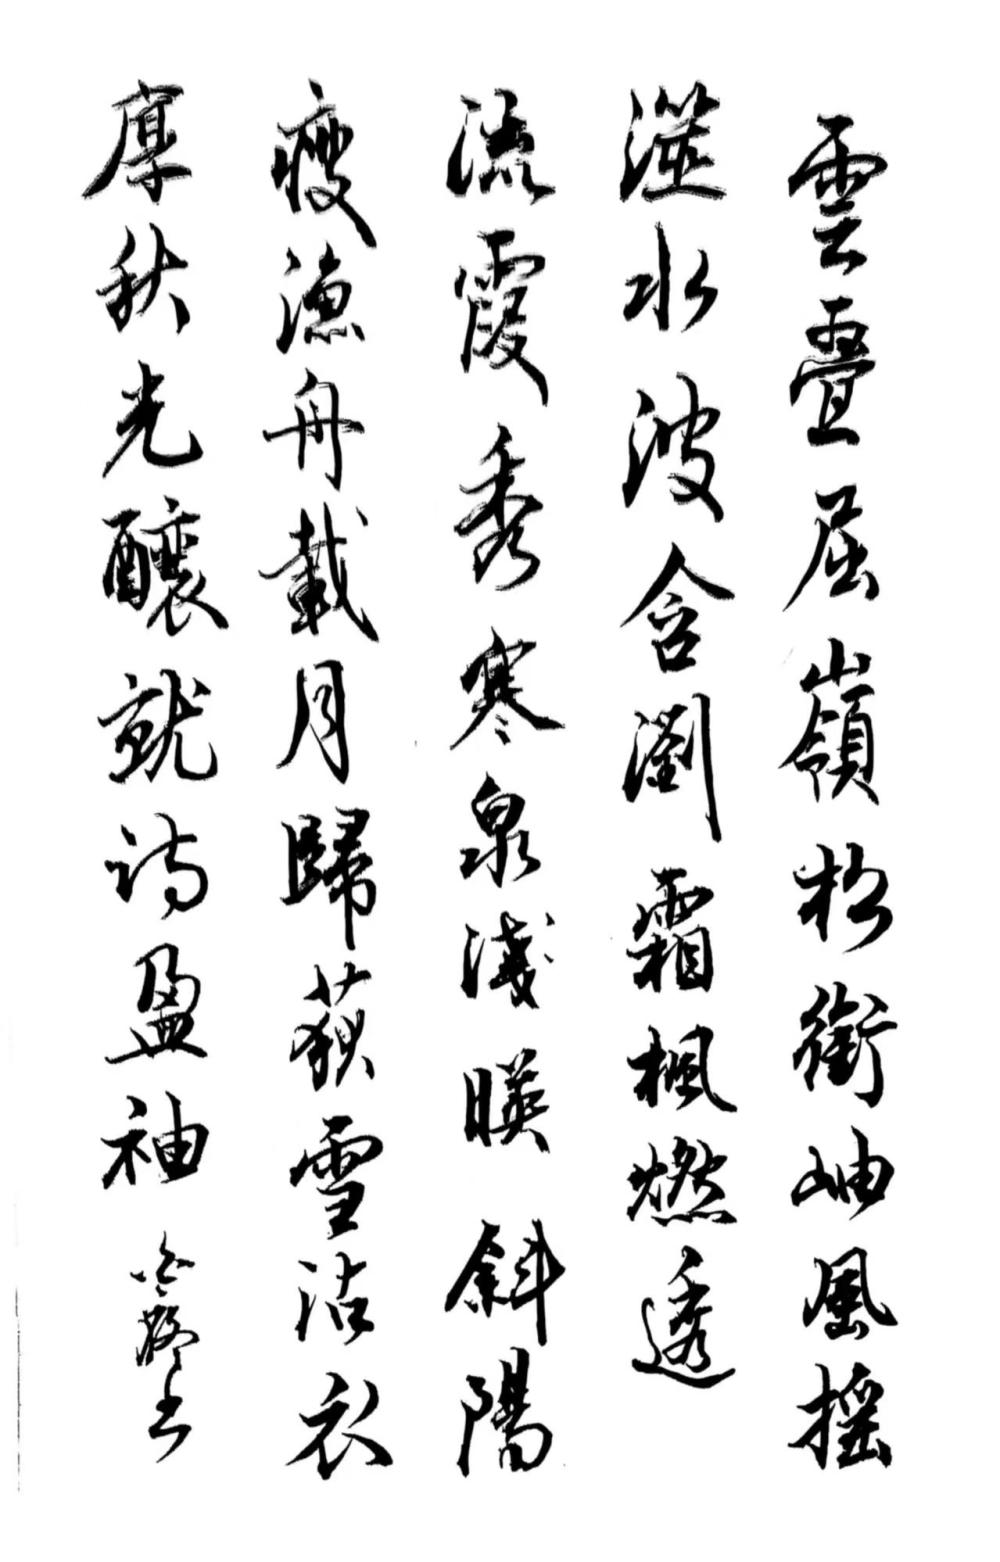 雲疊屈嶺松銜岫風搖
澨水波含瀏霜楓燃透
流霞秀寒泉淺暎斜陽
瘦漁舟載月歸荻雪沾衣
厚秋光釀就詩盈袖